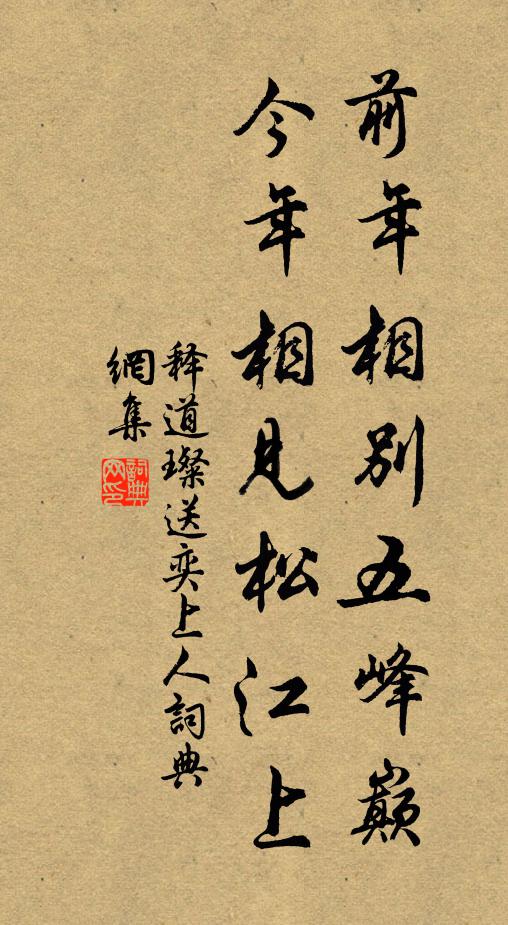 前年相別五峰巔
今年相見松江上
释道璨送奕上人詞典
網集
詞典
网印